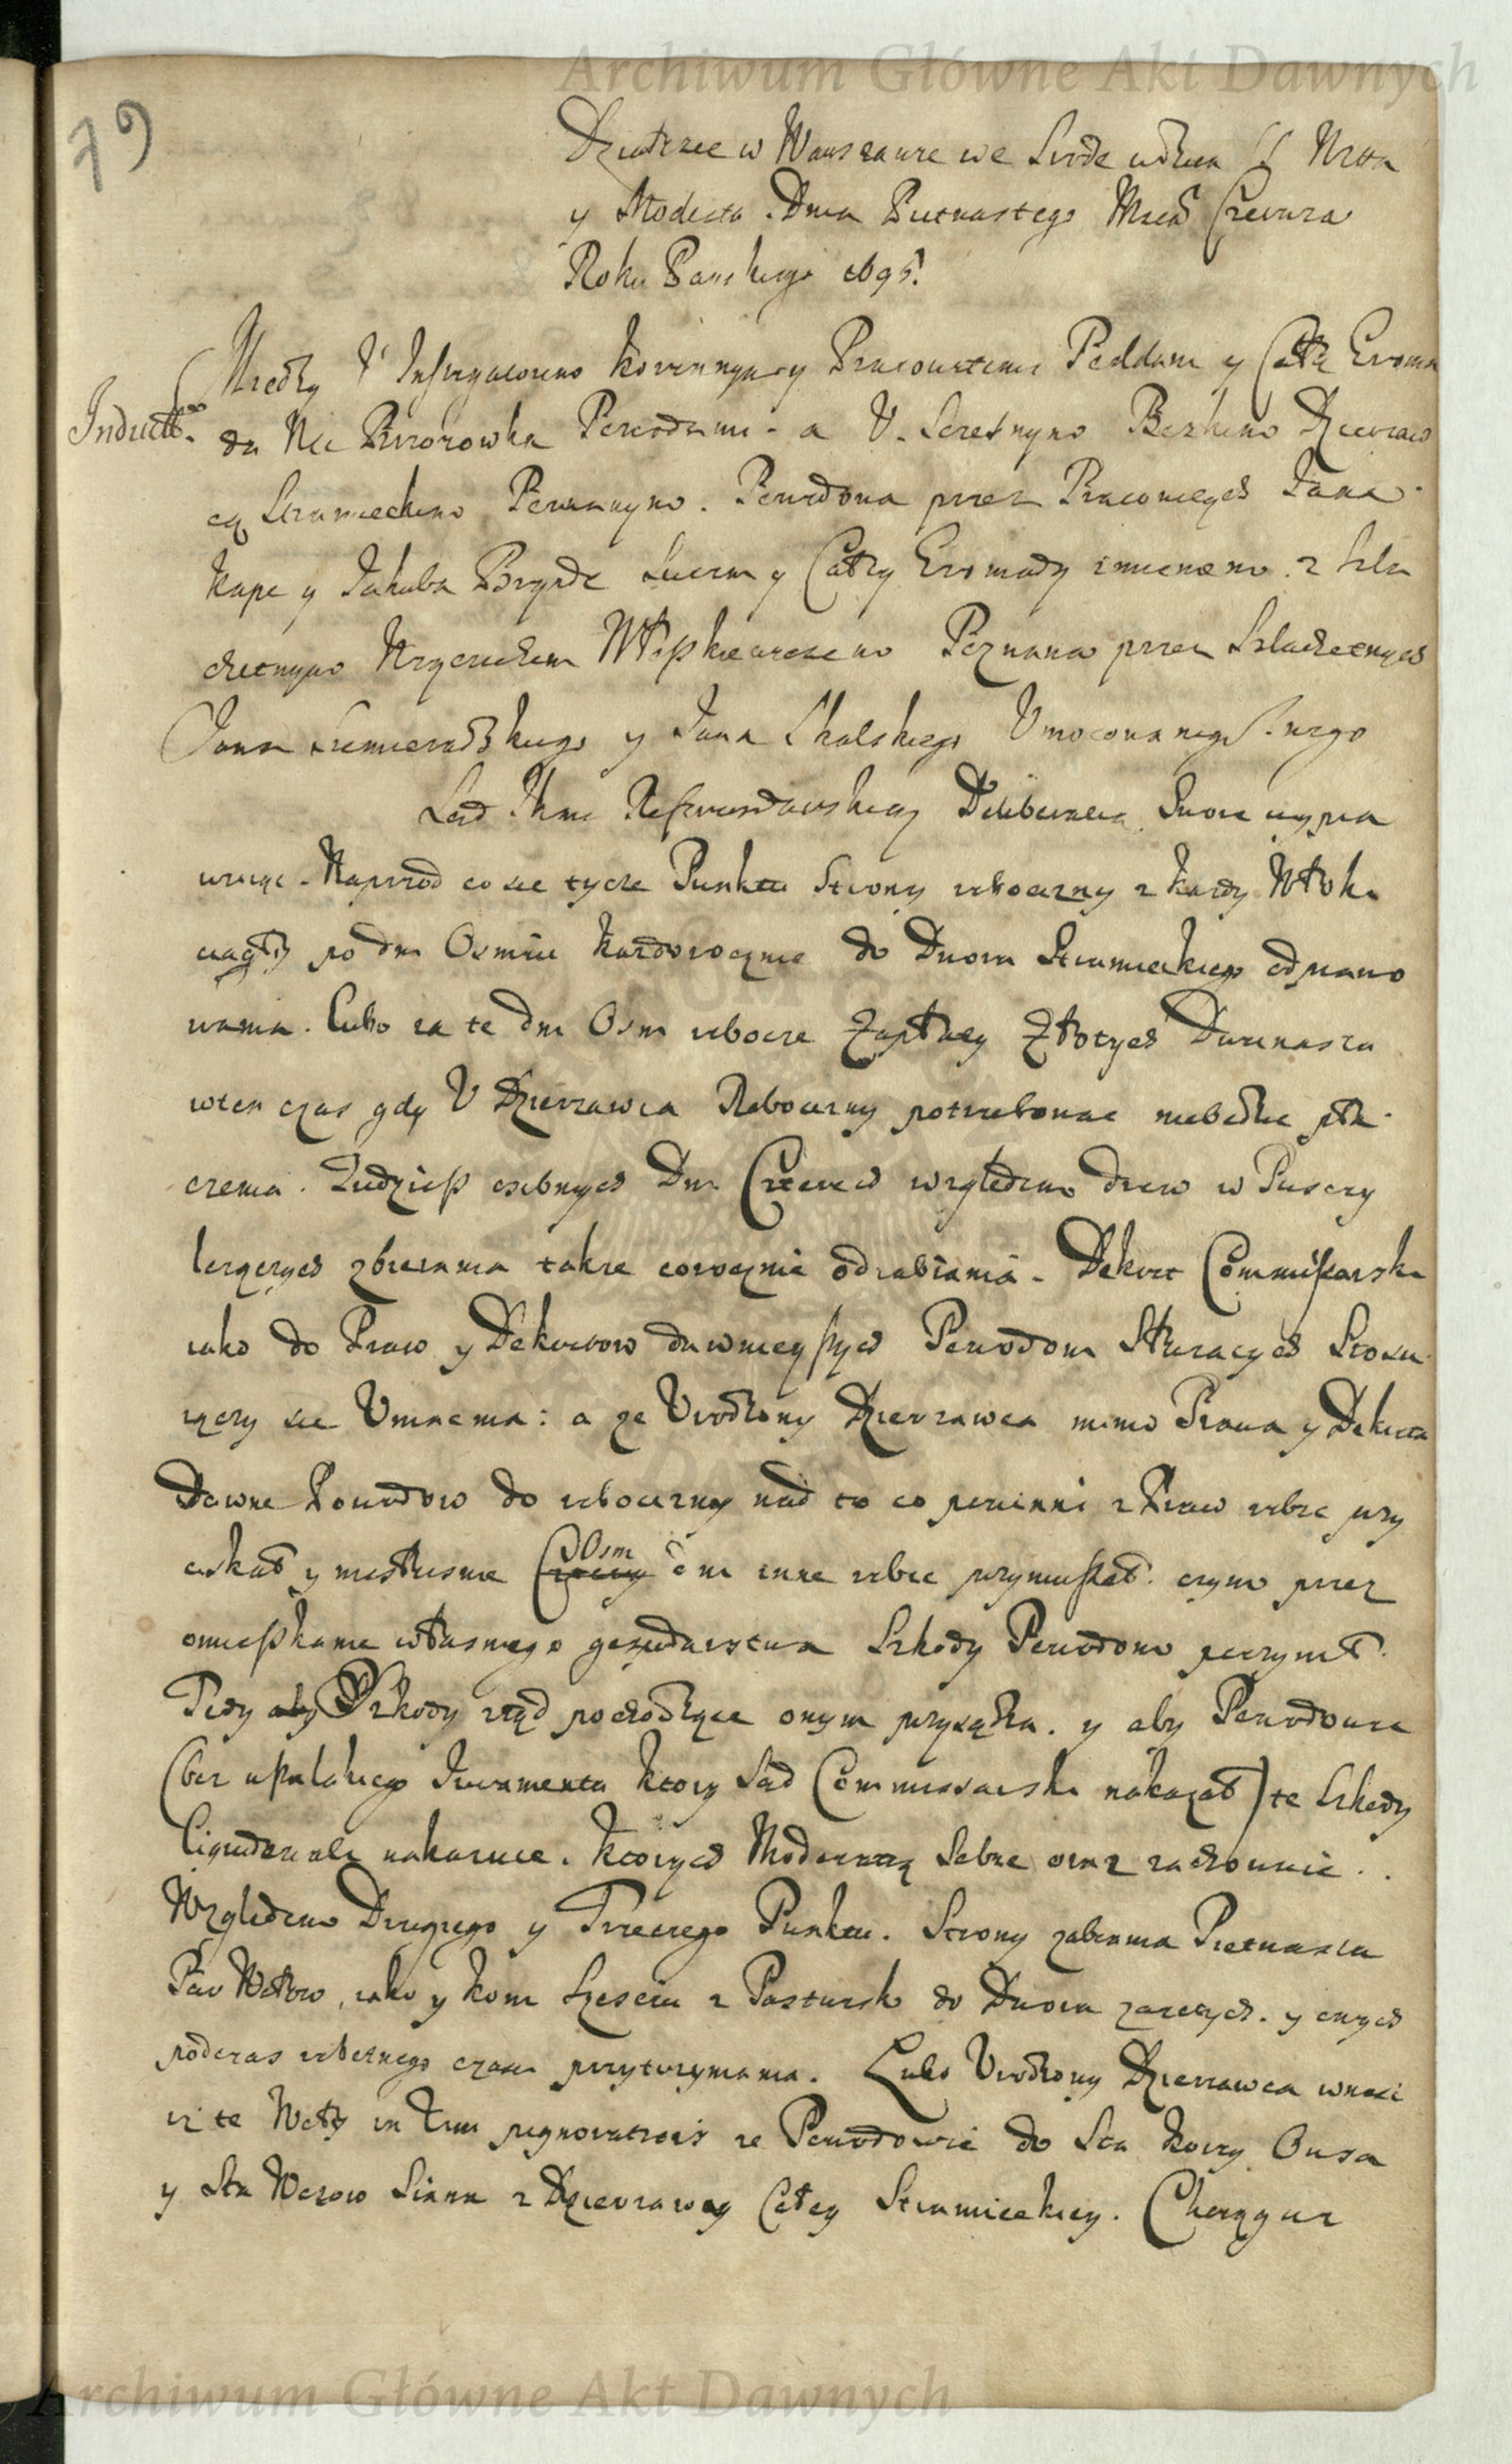 Archiwum Główne Akt Dawnych
79
Działo się w Warszawie we Srode w dzien SS Wita
y Modesta. Dnia Pietnastego Mcą Czerwca
Roku Panskiego 1695.
Induct.
Między V Instygatorem Koronnym y Pracowitemi Poddani y Całą Groma
dą Wsi Powodami a V. Bezkiem Dzierzaw
cą Stromieckim Pozwanym. Powodowa przez Pracowitych Jana
Kape y Jakuba Brzydz y Całey Gromady imieniem. z Szla
chetnym Pozwana przez Szlachetnych
Jana y Jana Skalskiego Vmocowanego
Sąd JKM Referendarski Deliberatia Swoie wypra
wuiąc. Naprzod co sie tycze Punktu Strony roboczny z kazdy Włoki
ciągły po dni Osmiu kazdorocznie do Dwora Stromieckiego odprawo
wania. Lubo za te dni Osm robocze Zapłacy Złotych Dwanascie
w ten czas gdy V Dzierzawca Roboczny potrzebowac niebędzie pła
czenia. Tudzięsz osobnych Dni Czterech względem drew w Puszczy
lezączych zbierania takze corocznie odrabiania. Dekret Commissarski
iako do Praw y Dekretow dawnieyszych Powodom Słuzacych Stosu
iączy sie Vmacnia: a ze Vrodzony Dzierzawca mimo Prawa y Dekreta
Dawne Powodow do roboczny nad to co powinni z Praw robic przy
ciskał y niesłusznie Osm dni inne robic przymuszał. czym przez
omieszkanie własnego gospodarstwa Szkody Powodom poczynił.
Tedy Szkody ztąd pochodzące onym przysądza. y aby Powodowie
(bez wszelakiego Juramentu ktory Sąd Commissarski nakazał) te Szkody
liquidowali nakazuie. ktorych Moderatią Sobie oraz zachowuie.
Względem Drugiego y Trzeciego Punktu. Strony zabrania Pietnascia
Par Wołow, iako y koni Szesciu z Pastwisk do Dwora zaiętych. y onych
podczas robotnego czasu przytrzymania. Lubo Vrodzony Dzierzawca wnosi
iz te Woły in Vim pignorationis ze Powodowie do Sta Korcy Owsa
y Sta Wozow Siana z Dzierzawy Całey Stromieckiey. Chorągwi
Archiwum Główne Akt Dawnych